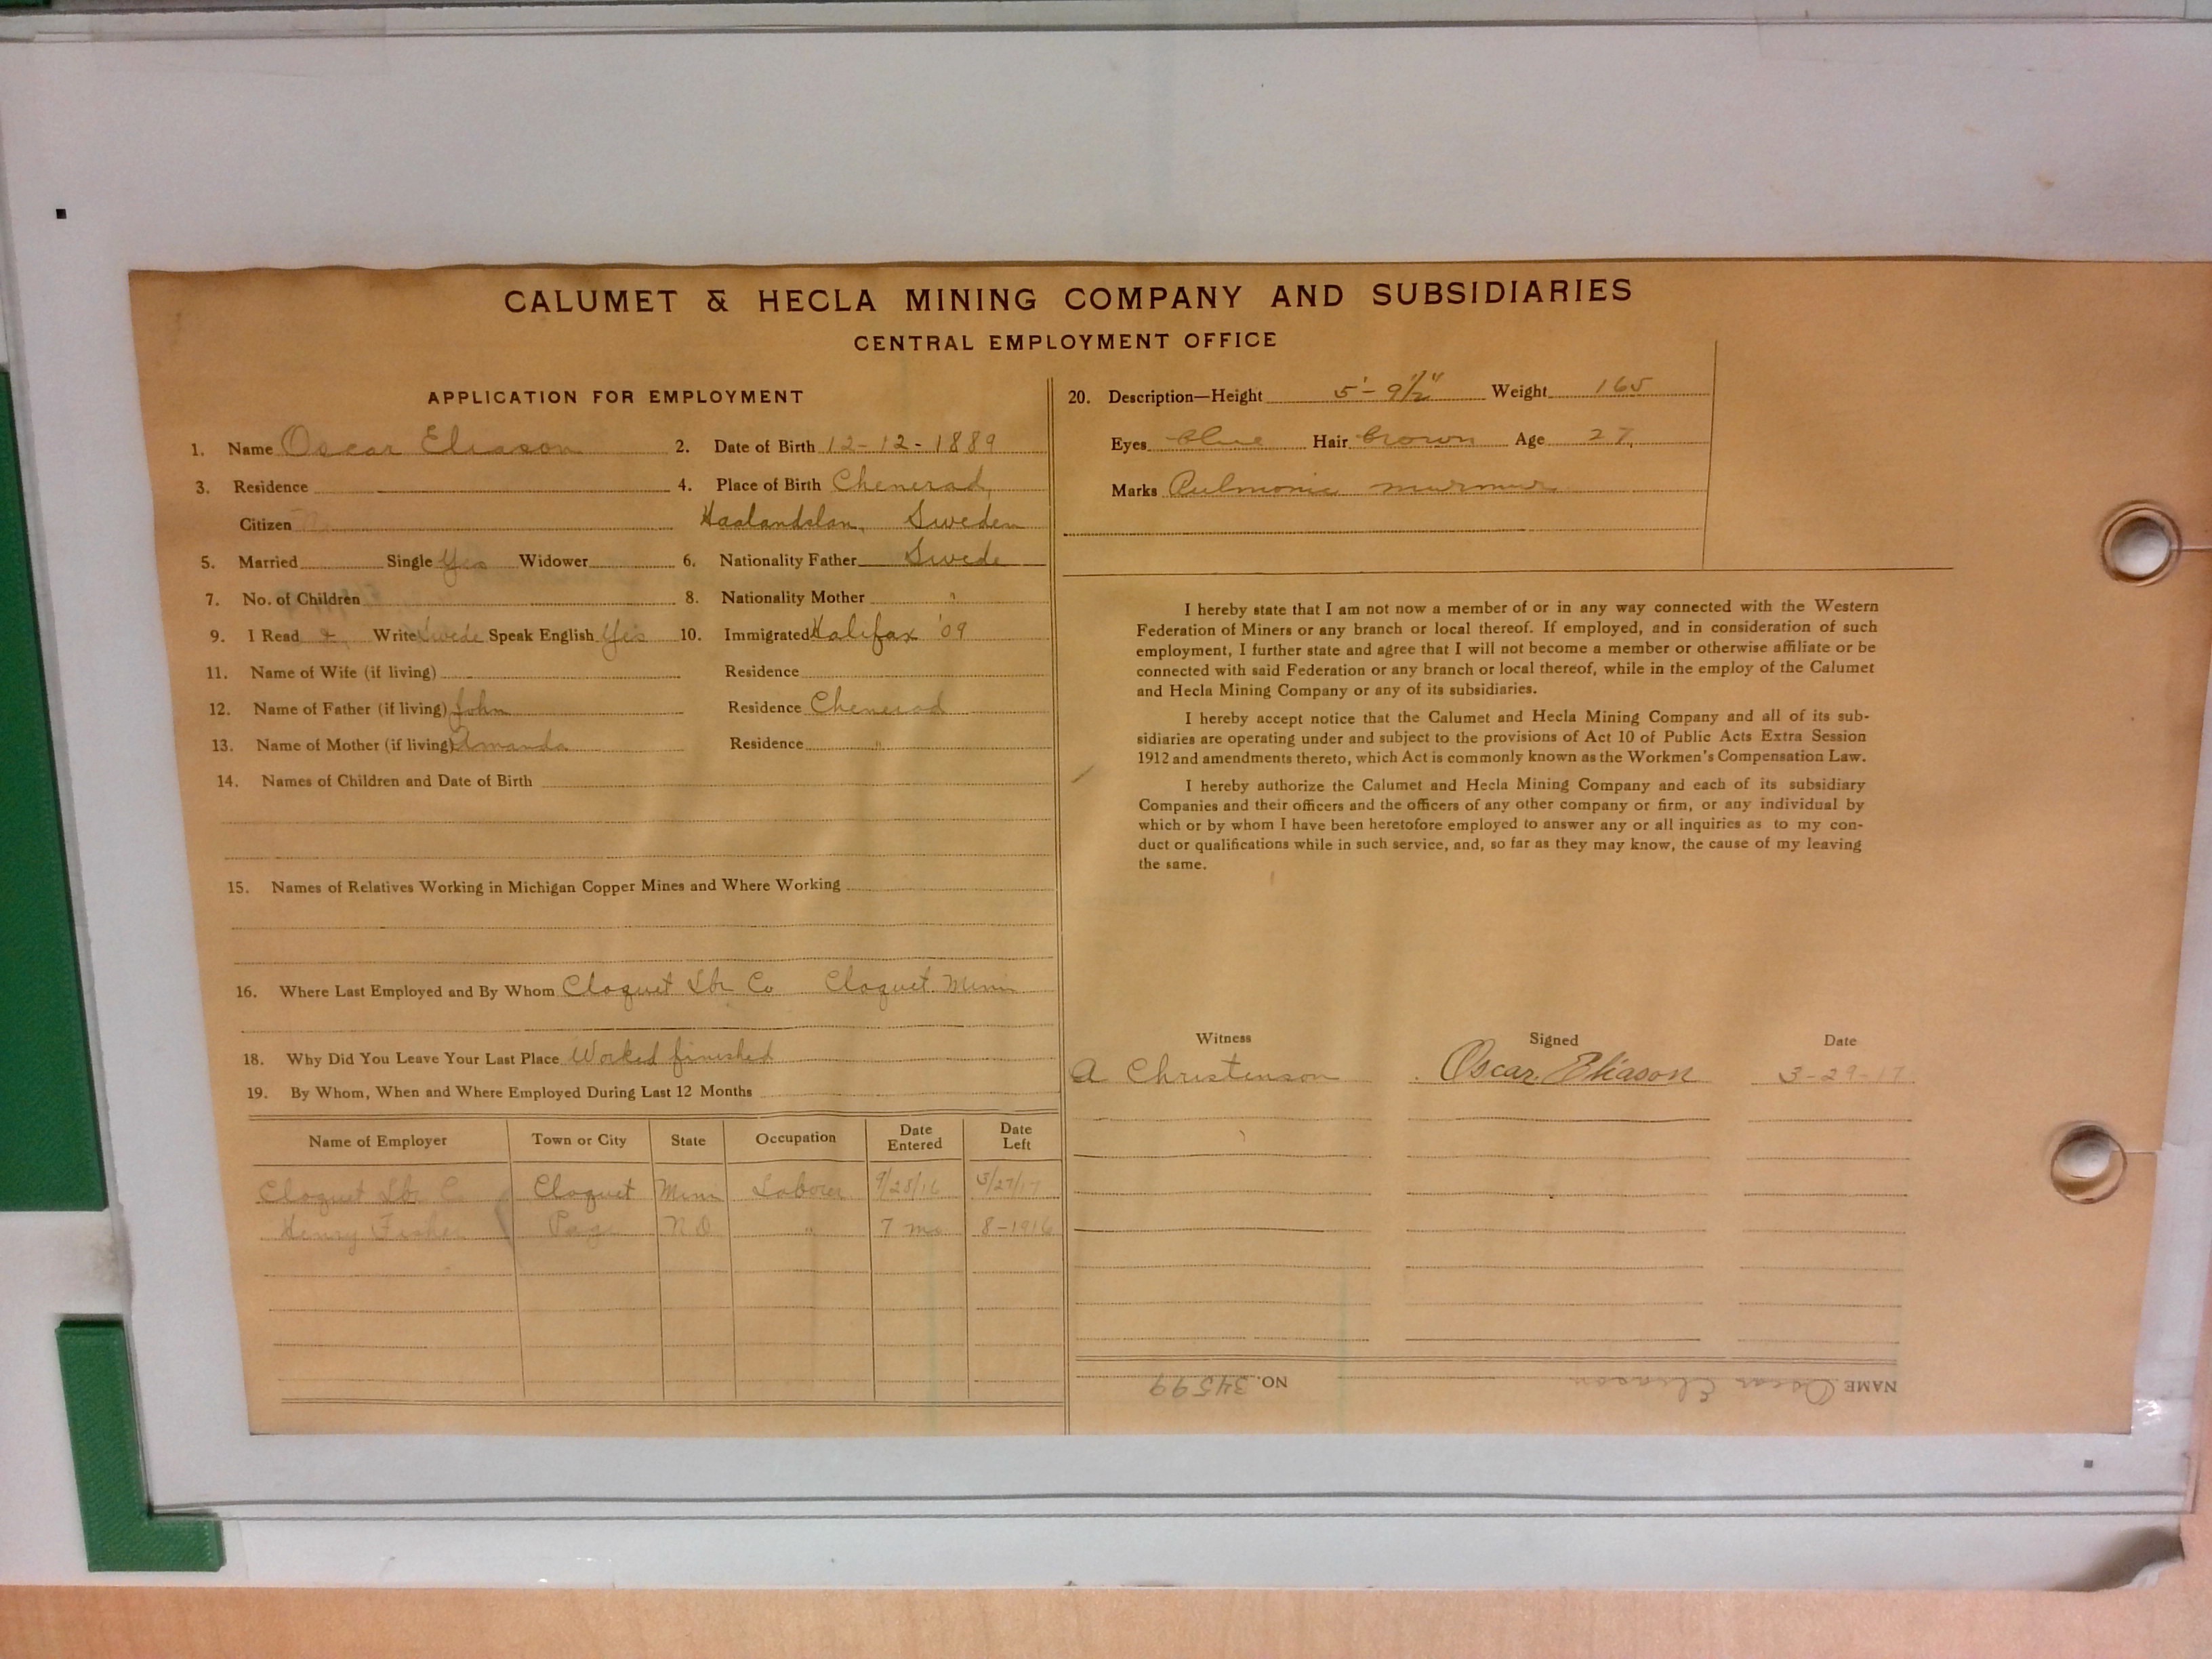 CALUMET & HECLA MINING COMPANY AND SUBSIDIARIES
CENTRAL EMPLOYMENT OFFICE
APPLICATION FOR EMPLOYMENT
1. Name Oscar Eliason 2. Date of Birth 12-12-1889
3. Residence 4. Place of Birth Chenerad
Citizen Haalandslan, Sweden
5. Married Single Yes Widower 6. Nationality Father Swede
7. No. of Children 8. Nationality Mother "
9. I Read & Write Swede Speak English Yes 10. Immigrated Halifax '09
11. Name of Wife (if living) Residence
12. Name of Father (if living) John Residence Chenerad
13. Name of Mother (if living) Amanda Residence "
14. Names of Children and Date of Birth
15. Names of Relatives Working in Michigan Copper Mines and Where Working
16. Where Last Employed and By Whom Cloquet Lbr Co Cloquet Minn
18. Why Did You Leave Your Last Place Worked finished
19. By Whom, When and Where Employed During Last 12 Months
Name of Employer Town or City State Occupation Date Entered Date Left
Cloquet Lbr C Cloquet Minn Laborer 9/28/16 3/27/17
Henry Fisher Page ND " 7 mo 8-1916
20. Description—Height 5'-9½" Weight 165
Eyes Blue Hair brown Age 27
Marks Pulmonic murmur
I hereby state that I am not now a member of or in any way connected with the Western
Federation of Miners or any branch or local thereof. If employed, and in consideration of such
employment, I further state and agree that I will not become a member or otherwise affiliate or be
connected with said Federation or any branch or local thereof, while in the employ of the Calumet
and Hecla Mining Company or any of its subsidiaries.
I hereby accept notice that the Calumet and Hecla Mining Company and all of its sub-
sidiaries are operating under and subject to the provisions of Act 10 of Public Acts Extra Session
1912 and amendments thereto, which Act is commonly known as the Workmen's Compensation Law.
I hereby authorize the Calumet and Hecla Mining Company and each of its subsidiary
Companies and their officers and the officers of any other company or firm, or any individual by
which or by whom I have been heretofore employed to answer any or all inquiries as to my con-
duct or qualifications while in such service, and, so far as they may know, the cause of my leaving
the same.
Witness Signed Date
A Christenson Oscar Eliason 3-29-17
NAME Oscar Eliason NO. 34599